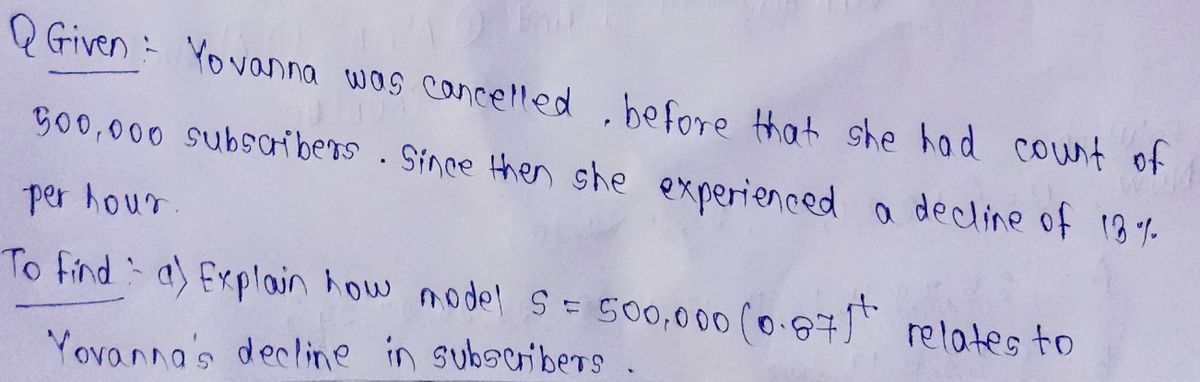 Q Given :- Yovanna was cancelled , before that she had count of
500,000 subscribers . Since then she experienced a decline of 13 %
per hour.
To find :- a) Explain how model S = 500,000 (0.87)^t relates to
Yovanna's decline in subscribers .